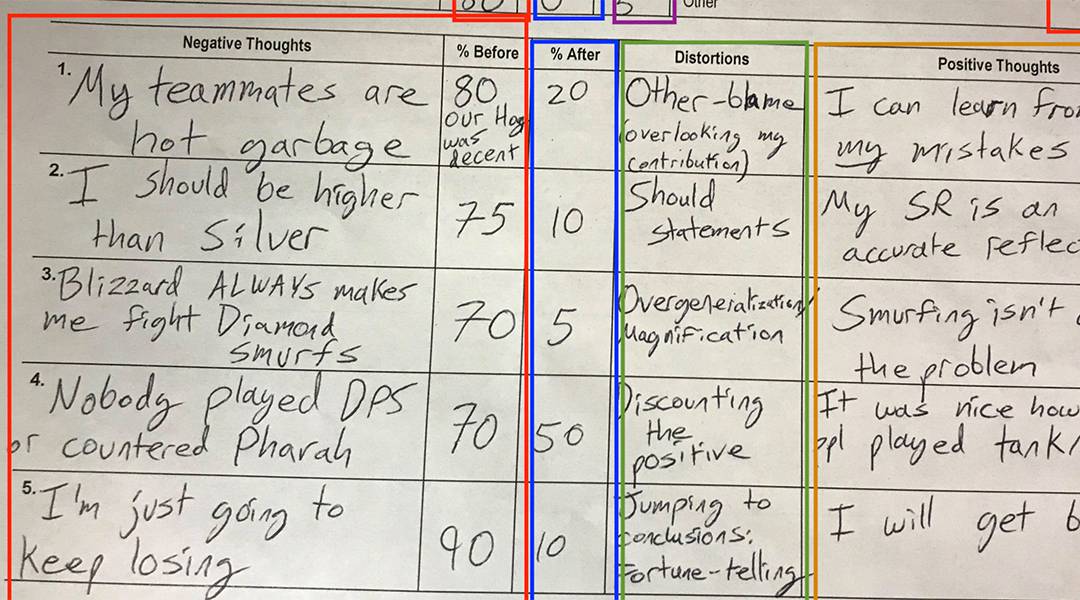 Other
Negative Thoughts
% Before
% After
Distortions
Positive Thoughts
1. My teammates are
hot garbage
80
our Hog
was
decent
20
Other-blame
(overlooking my
contribution)
I can learn from
my mistakes
2. I should be higher
than Silver
75
10
Should
statements
My SR is an
accurate reflec
3. Blizzard ALWAYS makes
me fight Diamond
smurfs
70
5
Overgeneralization/
Magnification
Smurfing isn't
the problem
4. Nobody played DPS
or countered Pharah
70
50
Discounting
the
positive
It was nice how
ppl played tank/
5. I'm just going to
keep losing
90
10
Jumping to
conclusions:
Fortune-telling
I will get b